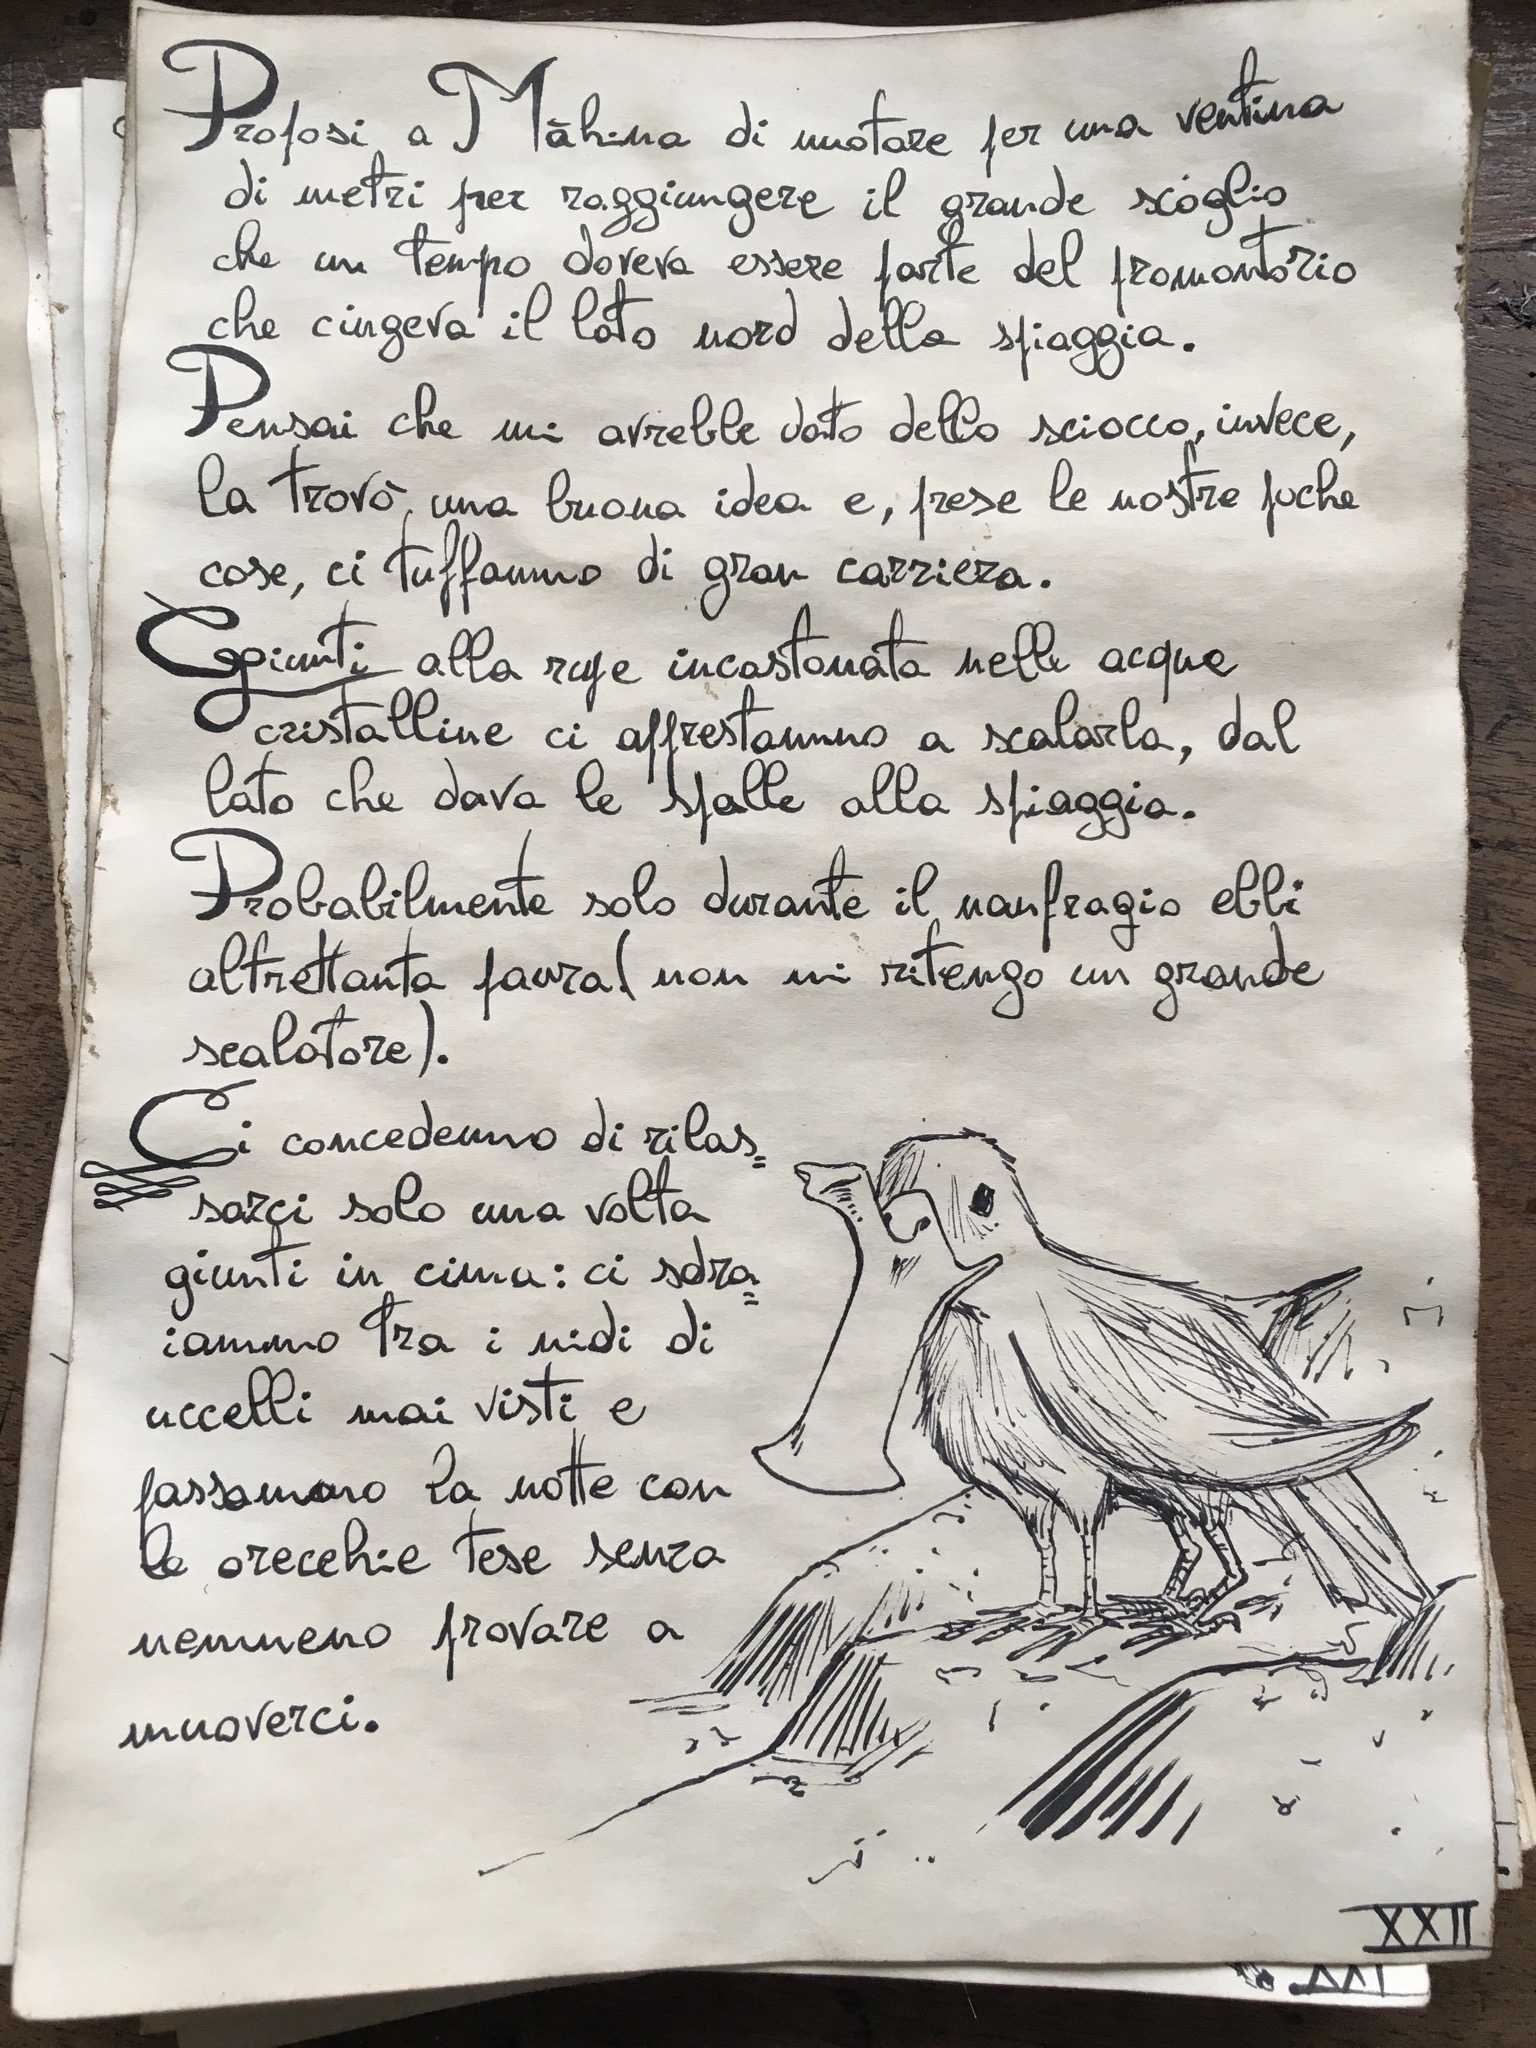 Proposi a Māhina di nuotare per una ventina
di metri per raggiungere il grande scoglio
che un tempo doveva essere parte del promontorio
che cingeva il lato nord della spiaggia.
Pensai che mi avrebbe dato dello sciocco, invece,
la trovò una buona idea e, prese le nostre poche
cose, ci tuffammo di gran carriera.
Giunti alla rupe incastonata nelle acque
cristalline ci apprestammo a scalarla, dal
lato che dava le spalle alla spiaggia.
Probabilmente solo durante il naufragio ebbi
altrettanta paura (non mi ritengo un grande
scalatore).
Ci concedemmo di rilas=
sarci solo una volta
giunti in cima: ci sdra=
iammo tra i nidi di
uccelli mai visti e
passammo la notte con
le orecchie tese senza
nemmeno provare a
muoverci.
XXII
XXI